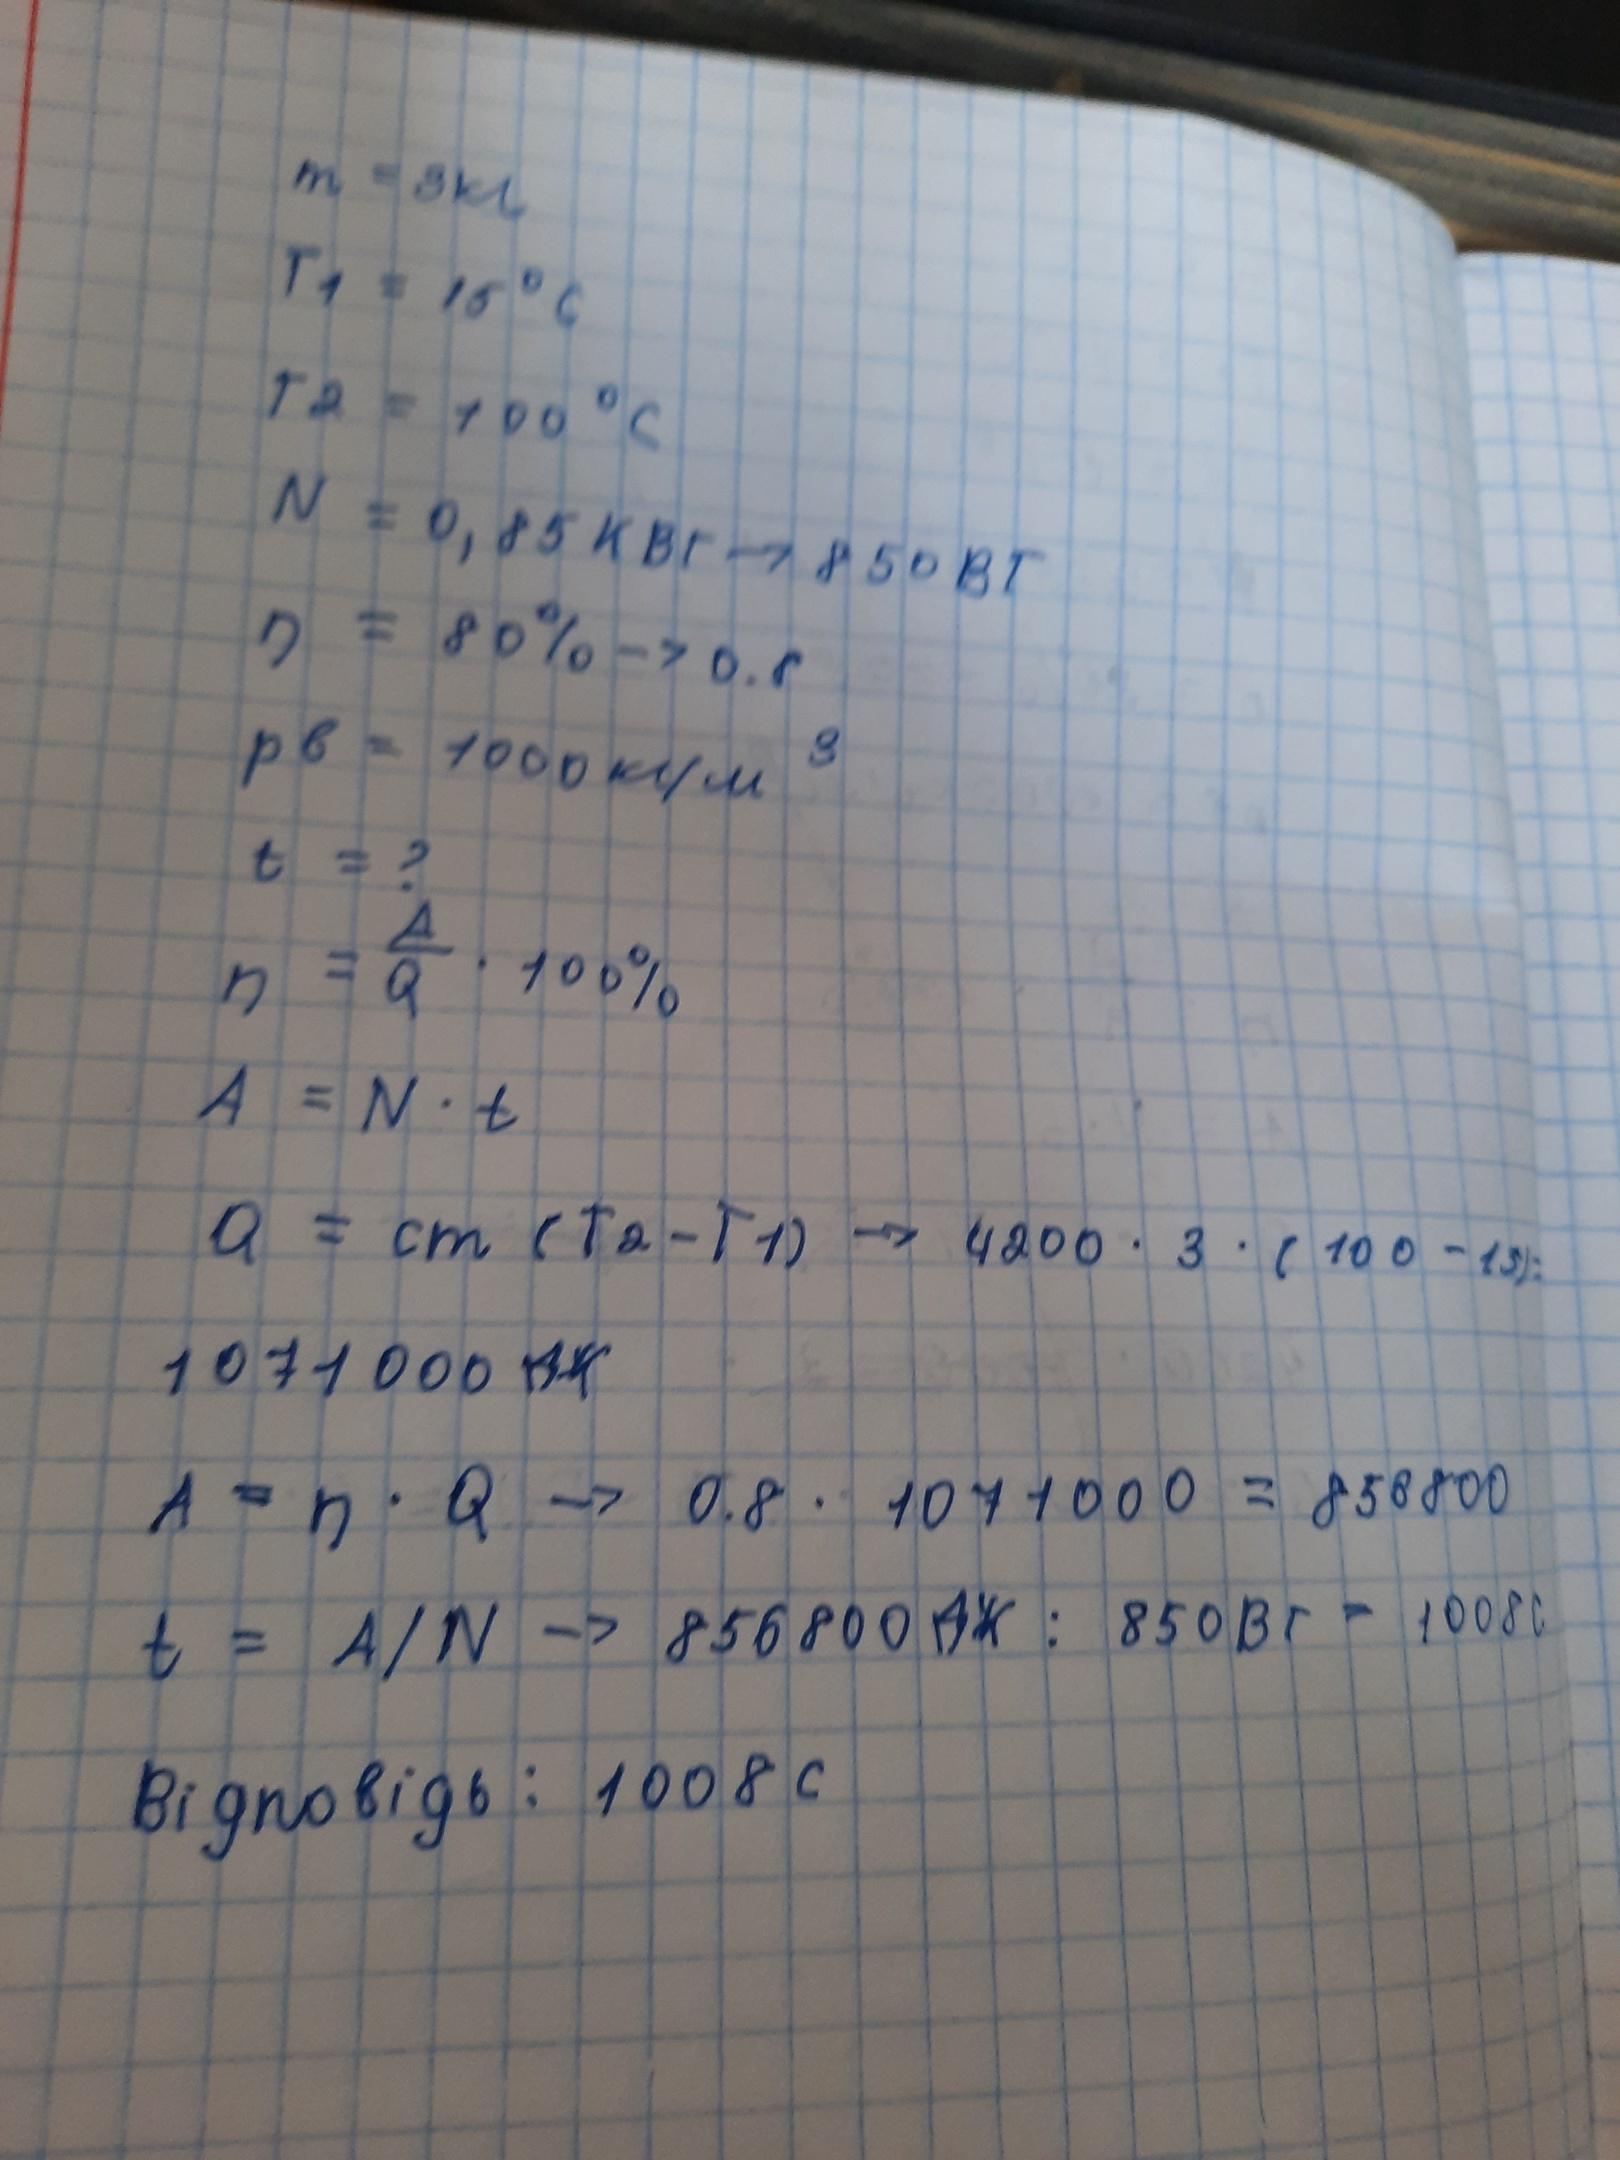 m = 3кг
T1 = 15°C
T2 = 100°C
N = 0,85КВт → 850ВТ
η = 80% → 0.8
pв = 1000кг/м³
t = ?
η = A/Q · 100%
A = N · t
Q = cm (T2 - T1) → 4200 · 3 · (100 - 15) =
1071000 ДЖ
A = η · Q → 0.8 · 1071000 = 856800
t = A/N → 856800 ДЖ : 850Вт = 1008с
Відповідь: 1008 с